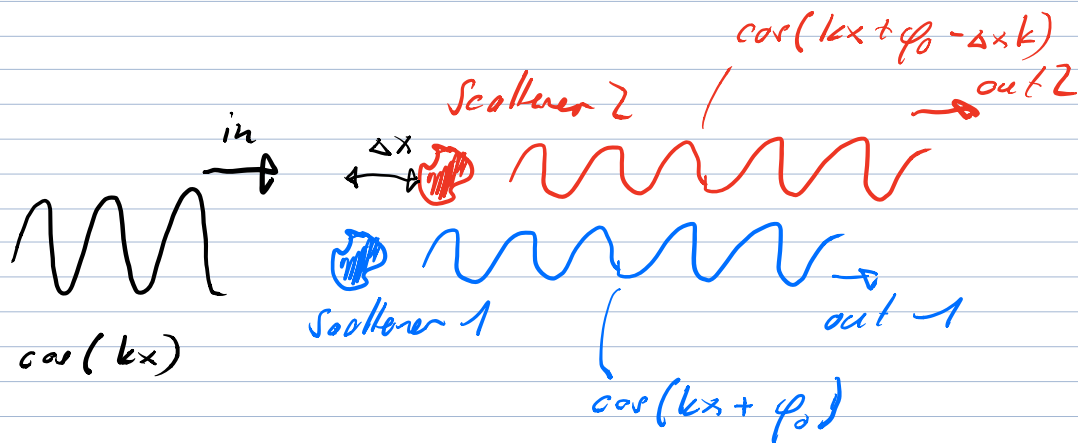 cos(kx+φ₀-Δxk)
out 2
Scatterer 2
in
Δx
Scatterer 1
out 1
cos(kx)
cos(kx+φ₀)